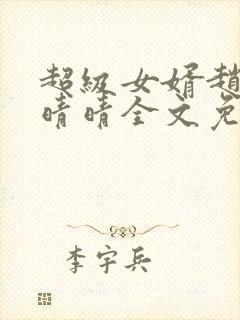 超級女婿趙
晴晴全文免
李宇兵